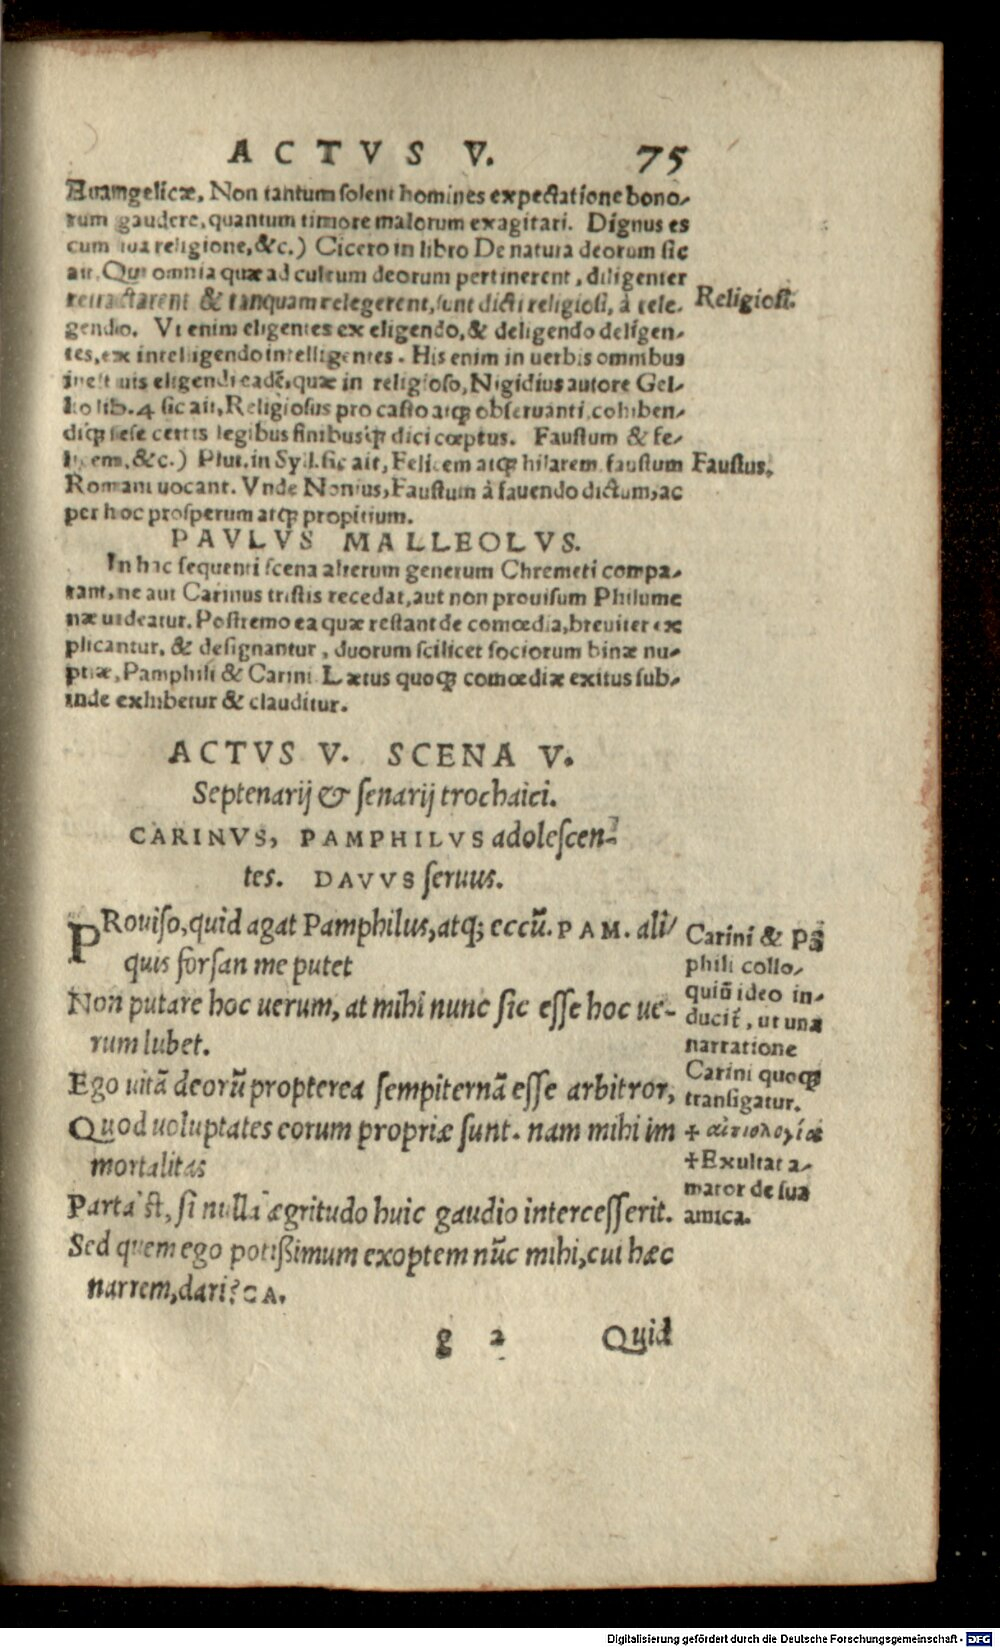 ACTVS V. 75
Euangelicæ. Non tantum solent homines expectatione bono-
rum gaudere, quantum timore malorum exagitari. Dignus es
cum tua religione, &c.) Cicero in libro De natura deorum sic
ait. Qui omnia quæ ad cultum deorum pertinerent, diligenter
retractarent & tanquam relegerent, sunt dicti religiosi, à rele-
Religiosi.
gendo. Vt enim eligentes ex eligendo, & deligendo deligen-
tes, ex intelligendo intelligentes. His enim in uerbis omnibus
inest uis eligendi eadẽ, quæ in religioso, Nigidius autore Gel-
lio lib. 4 sic ait, Religiosus pro casto atq; obseruanti, cohiben-
diq; sese certis legibus finibusq; dici cœptus. Faustum & fe-
licem, &c.) Plut. in Syl. sic ait, Felicem atq; hilarem faustum
Faustus.
Romani uocant. Vnde Nonius, Faustum à fauendo dictum, ac
per hoc prosperum atq; propitium.
PAVLVS MALLEOLVS.
In hac sequenti scena alterum generum Chremeti compa-
rant, ne aut Carinus tristis recedat, aut non prouisum Philume
næ uideatur. Postremo ea quæ restant de comœdia, breuiter ex
plicantur, & designantur, duorum scilicet sociorum binæ nu-
ptiæ, Pamphili & Carini Lætus quoq; comœdiæ exitus sub-
inde exhibetur & clauditur.
ACTVS V. SCENA V.
Septenarij & senarij trochaici.
CARINVS, PAMPHILVS adolescen-
tes. DAVVS seruus.
PRouiso, quid agat Pamphilus, atq; eccũ. PAM. ali-
quis forsan me putet
Non putare hoc uerum, at mihi nunc sic esse hoc ue-
rum lubet.
Ego uitã deorũ propterea sempiternã esse arbitror,
Quod uoluptates eorum propriæ sunt. nam mihi im
mortalitas
Parta st, si nulla ægritudo huic gaudio intercesserit.
Sed quem ego potißimum exoptem nũc mihi, cui hæc
narrem, dari? CA.
Carini & Pã
phili collo-
quiũ ideo in-
ducit̃, ut una
narratione
Carini quoq;
transigatur.
+ αἰτιολογία
+ Exultat a-
mator de sua
amica.
g 2 Quid
Digitalisierung gefördert durch die Deutsche Forschungsgemeinschaft - DFG